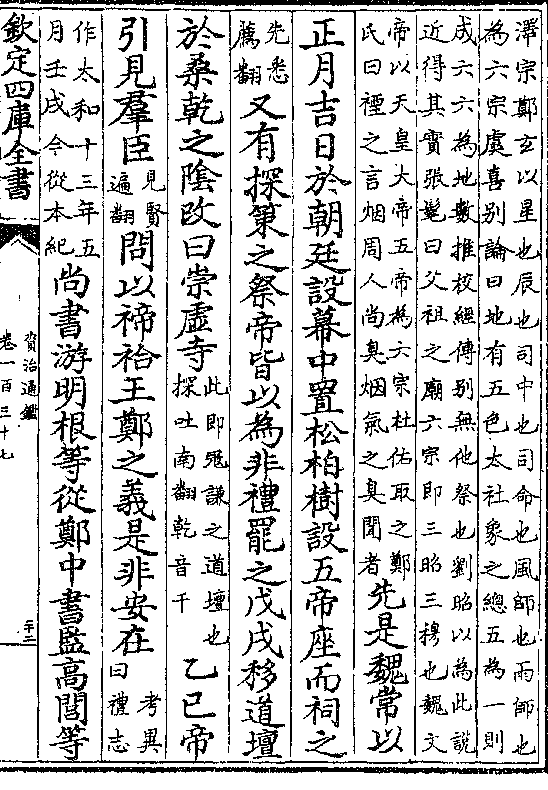 澤宗鄭玄以星也辰也司中也司命也風師也雨師也
為六宗虞喜別論曰地有五色太社象之總五為一則
成六六為地數推校經傳別無他祭也劉昭以為此說
近得其實張髦曰父祖之廟六宗即三昭三穆也魏文
帝以天皇大帝五帝為六宗杜佑取之鄭
氏曰禋之言烟周人尚臭烟氣之臭聞者
先是魏常以
正月吉日於朝廷設幕中置松柏樹設五帝座而祠之
先悉
薦翻
又有探策之祭帝皆以為非禮罷之戊戌移道壇
於桑乾之陰改曰崇虛寺
此即冦謙之道壇也
探吐南翻乾音干
乙巳帝
引見羣臣
見賢
遍翻
問以禘祫王鄭之義是非安在
考異
曰禮志
作太和十三年五
月壬戌今從本紀
尚書游明根等從鄭中書監高閭等
欽定四庫全書
資治通鑑
卷一百三十七